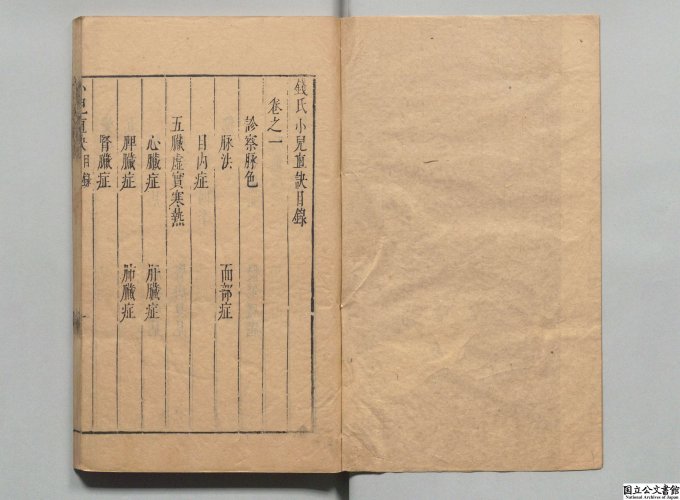 錢氏小兒直訣目錄
卷之一
診察脉色
脉法 面部症
目内症
五臟虛實寒熱
心臟症 肝臟症
脾臟症 肺臟症
腎臟症
小兒直訣目錄
国立公文書館
National Archives of Japan